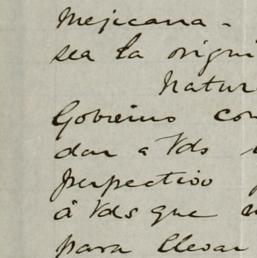 Mejicana -
sea la origin
Natur
Gobierno con
dar a Vds
perpectivo
á Vds que
para llevar